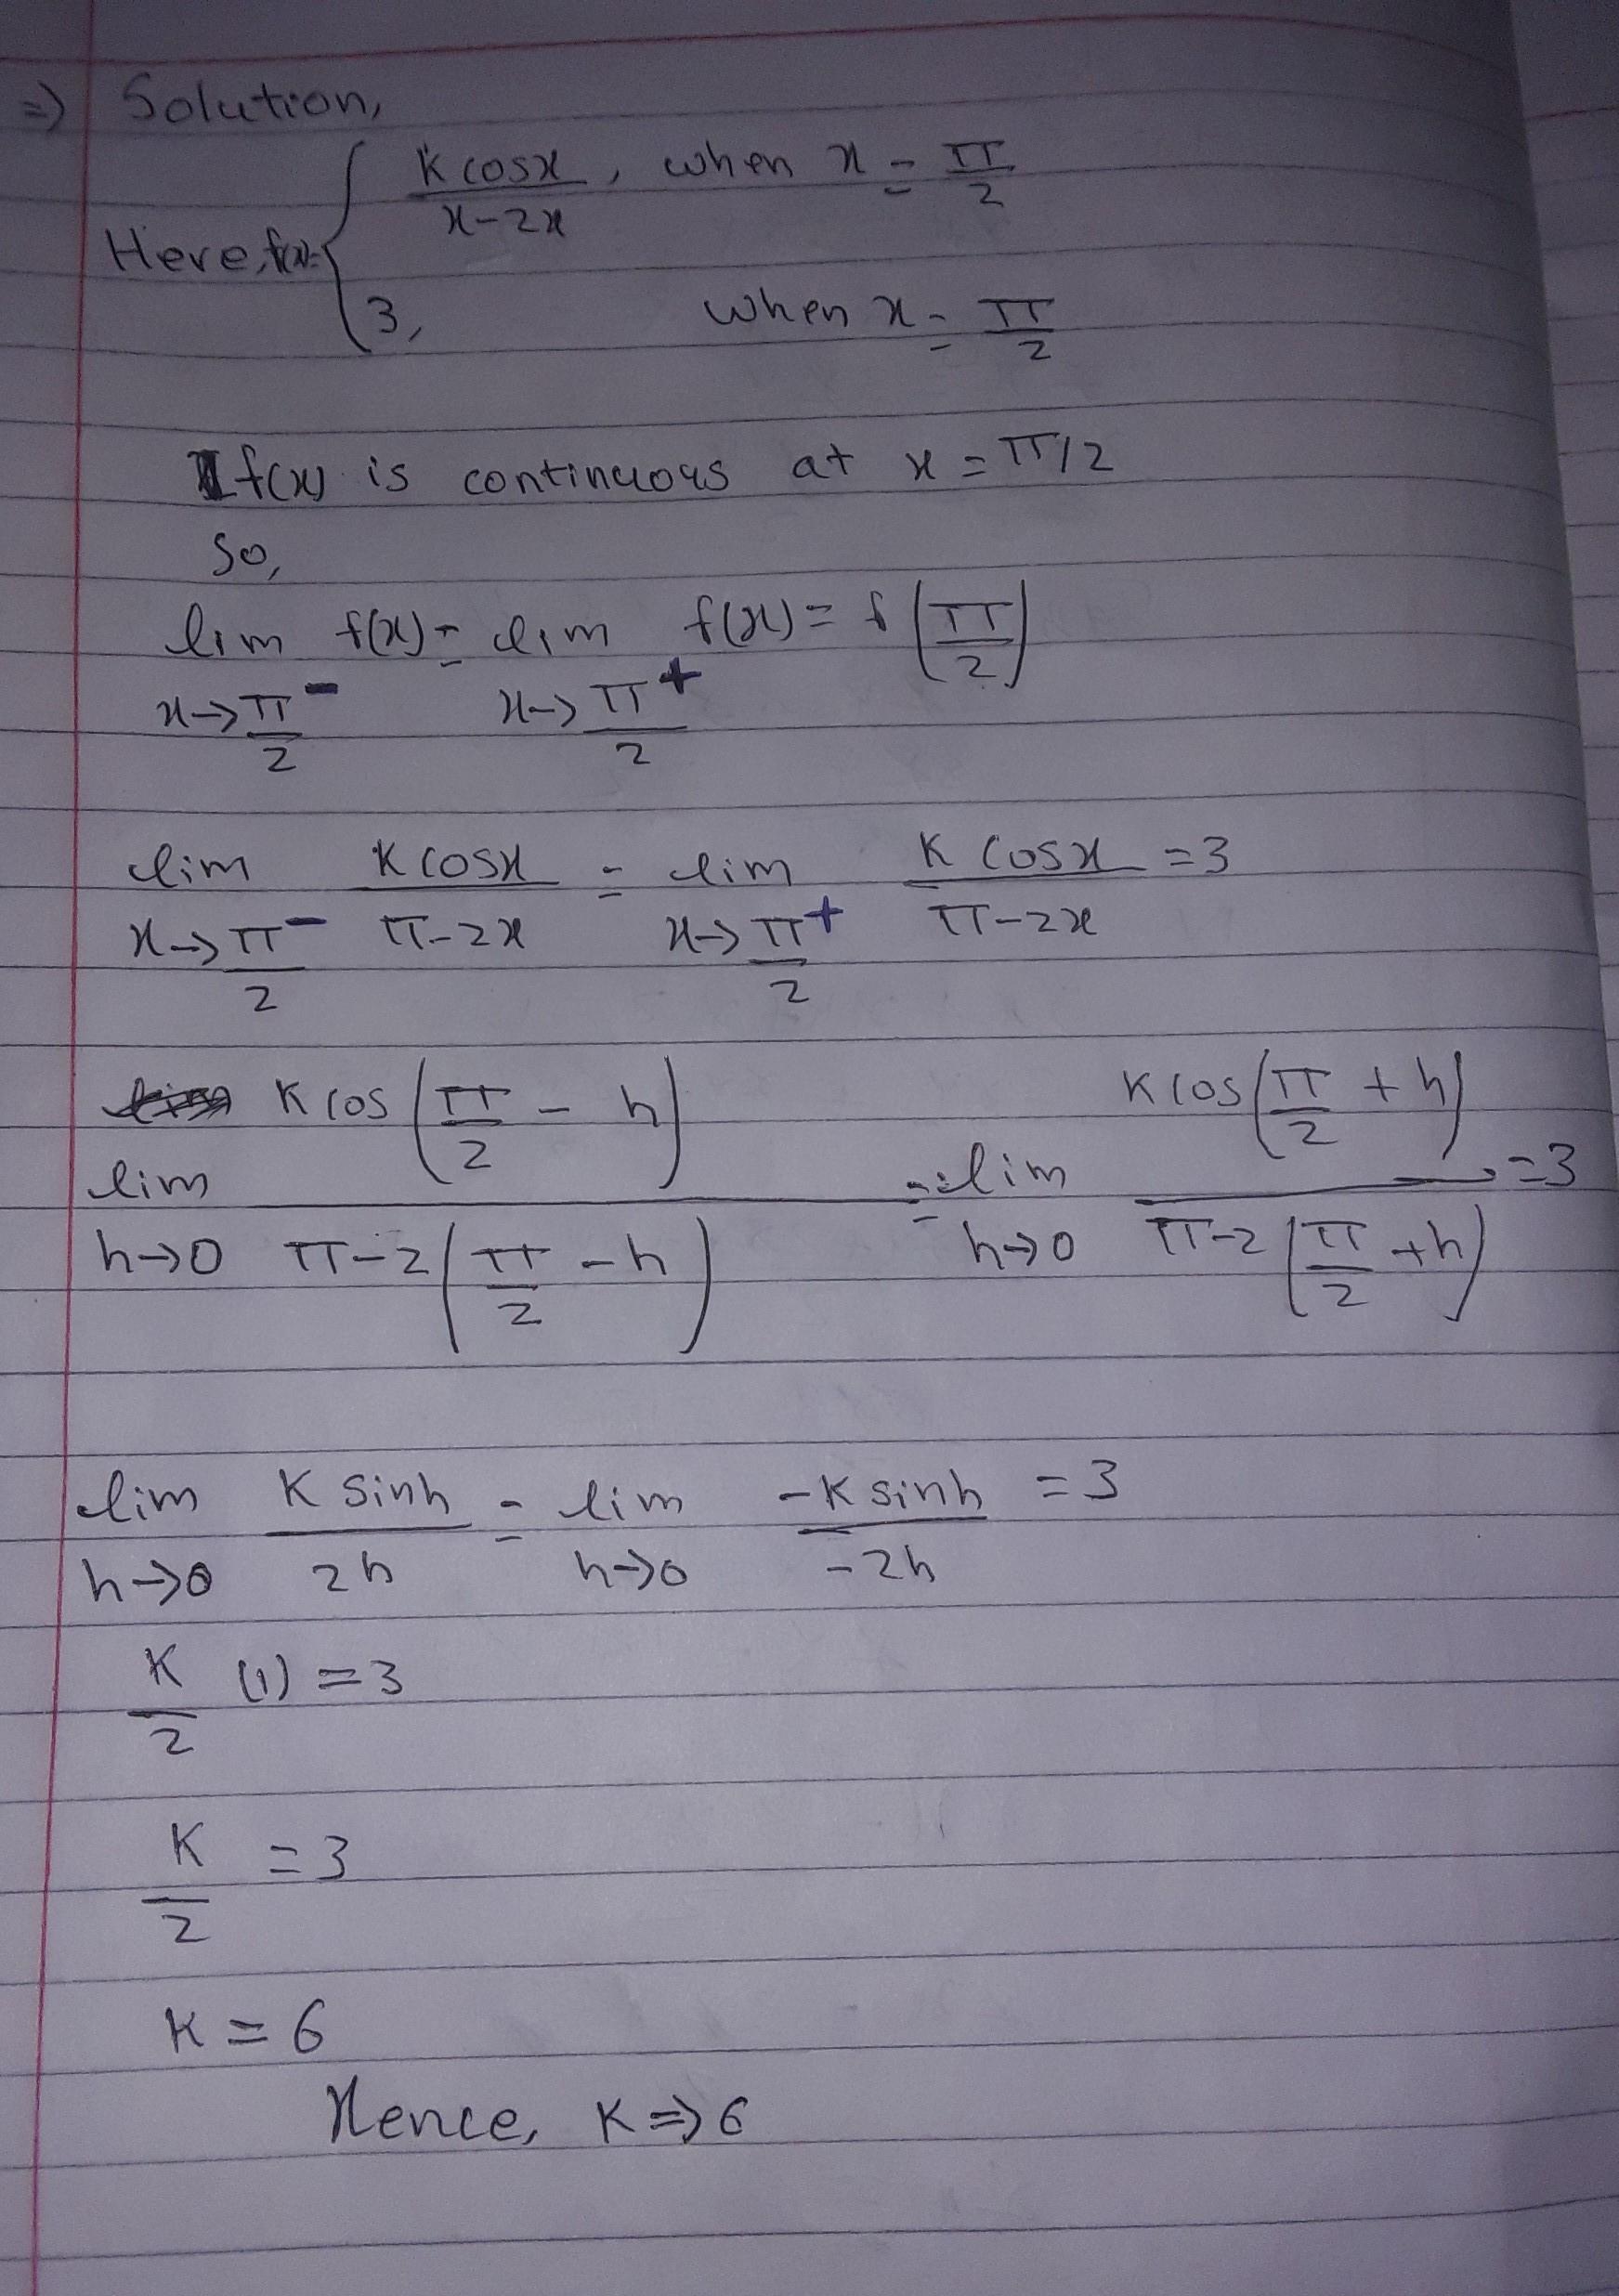 => Solution,
K cosx / x-2x , when x = π/2
Here, f(x)=
3, when x = π/2
If(x) is continuous at x = π/2
So,
lim x->π/2⁻ f(x) = lim x->π/2⁺ f(x) = f(π/2)
lim x->π/2⁻ K cosx / π-2x = lim x->π/2⁺ K cosx / π-2x = 3
lim h->0 K cos(π/2 - h) / π-2(π/2 - h) = lim h->0 K cos(π/2 + h) / π-2(π/2 + h) = 3
lim h->0 K sinh / 2h = lim h->0 -K sinh / -2h = 3
K/2 (1) = 3
K/2 = 3
K = 6
Hence, K => 6